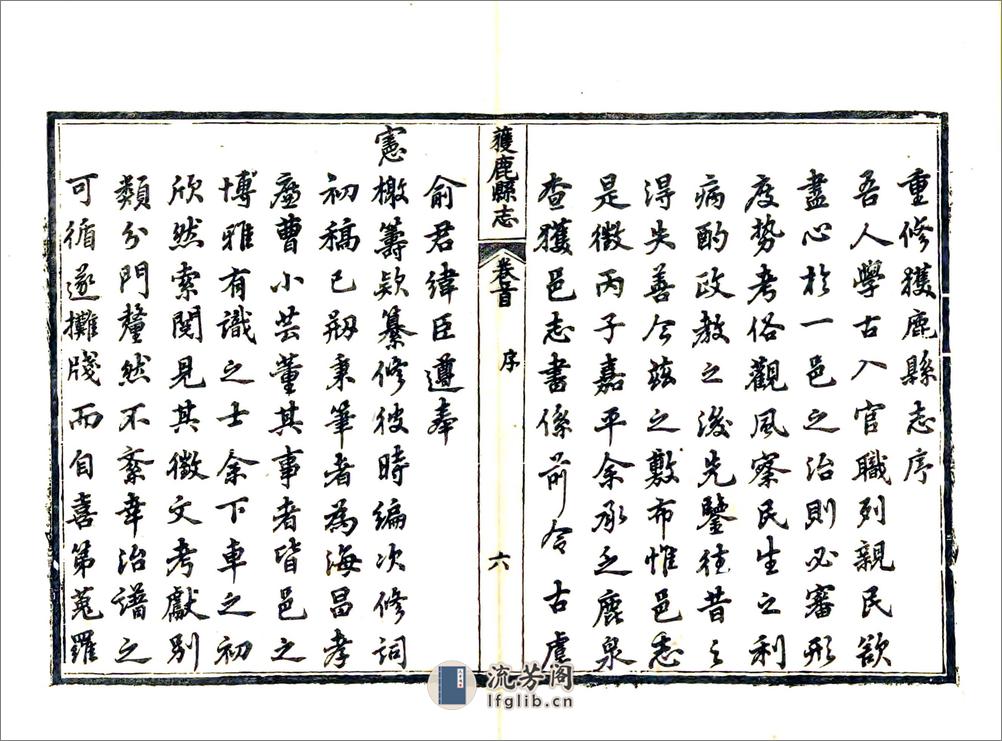 重修獲鹿縣志序
吾人學古入官職列親民欲
盡心於一邑之治則必審形
度勢考俗觀風察民生之利
病酌政教之後先鑒往昔之
得失善今茲之敷布惟邑志
是徵丙子嘉平余承乏鹿泉
查獲邑志書係前令古虞
獲鹿縣志
卷首
序
六
俞君緯臣遵奉
憲檄籌款纂修彼時編次修詞
初稿已剏秉筆者為海昌孝
廉曹小芸董其事者皆邑之
博雅有識之士余下車之初
欣然索閱見其徵文考獻別
類分門釐然不紊幸治譜之
可循遂攤牋而自喜第蒐羅
流芳阁
lfglib.cn